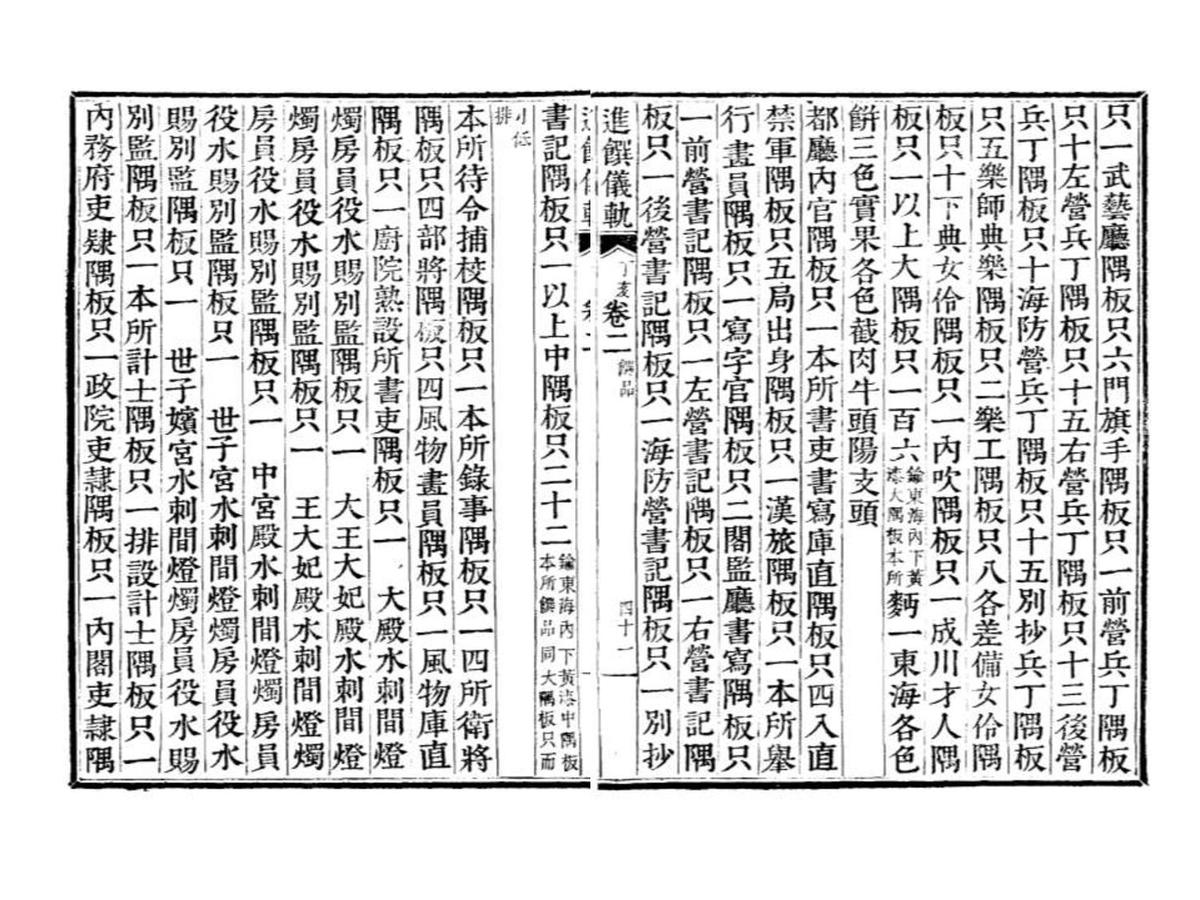 只一武藝廳隅板只六門旗手隅板只一前營兵丁隅板
只十左營兵丁隅板只十五右營兵丁隅板只十三後營
兵丁隅板只十海防營兵丁隅板只十五別抄兵丁隅板
只五樂師典樂隅板只二樂工隅板只八各差備女伶隅
板只十下典女伶隅板只一內吹隅板只一成川才人隅
板只一以上大隅板只一百六
鍮東海內下黃
漆大隅板本所
麪一東海各色
餠三色實果各色截肉牛頭陽支頭
都廳內官隅板只一本所書吏書寫庫直隅板只四入直
禁軍隅板只五局出身隅板只一漢旅隅板只一本所擧
行畫員隅板只一寫字官隅板只二閣監廳書寫隅板只
一前營書記隅板只一左營書記隅板只一右營書記隅
板只一後營書記隅板只一海防營書記隅板只一別抄
進饌儀軌
丁亥
卷二
饌品
四十一
書記隅板只一以上中隅板只二十二
鍮東海內下黃漆中隅板
本所饌品同大隅板只而
小低
排
本所待令捕校隅板只一本所錄事隅板只一四所衛將
隅板只四部將隅板只四風物畫員隅板只一風物庫直
隅板只一廚院熟設所書吏隅板只一 大殿水刺間燈
燭房員役水賜別監隅板只一 大王大妃殿水刺間燈
燭房員役水賜別監隅板只一 王大妃殿水刺間燈燭
房員役水賜別監隅板只一 中宮殿水刺間燈燭房員
役水賜別監隅板只一 世子宮水刺間燈燭房員役水
賜別監隅板只一 世子嬪宮水刺間燈燭房員役水賜
別監隅板只一本所計士隅板只一排設計士隅板只一
內務府吏隷隅板只一政院吏隷隅板只一內閣吏隷隅